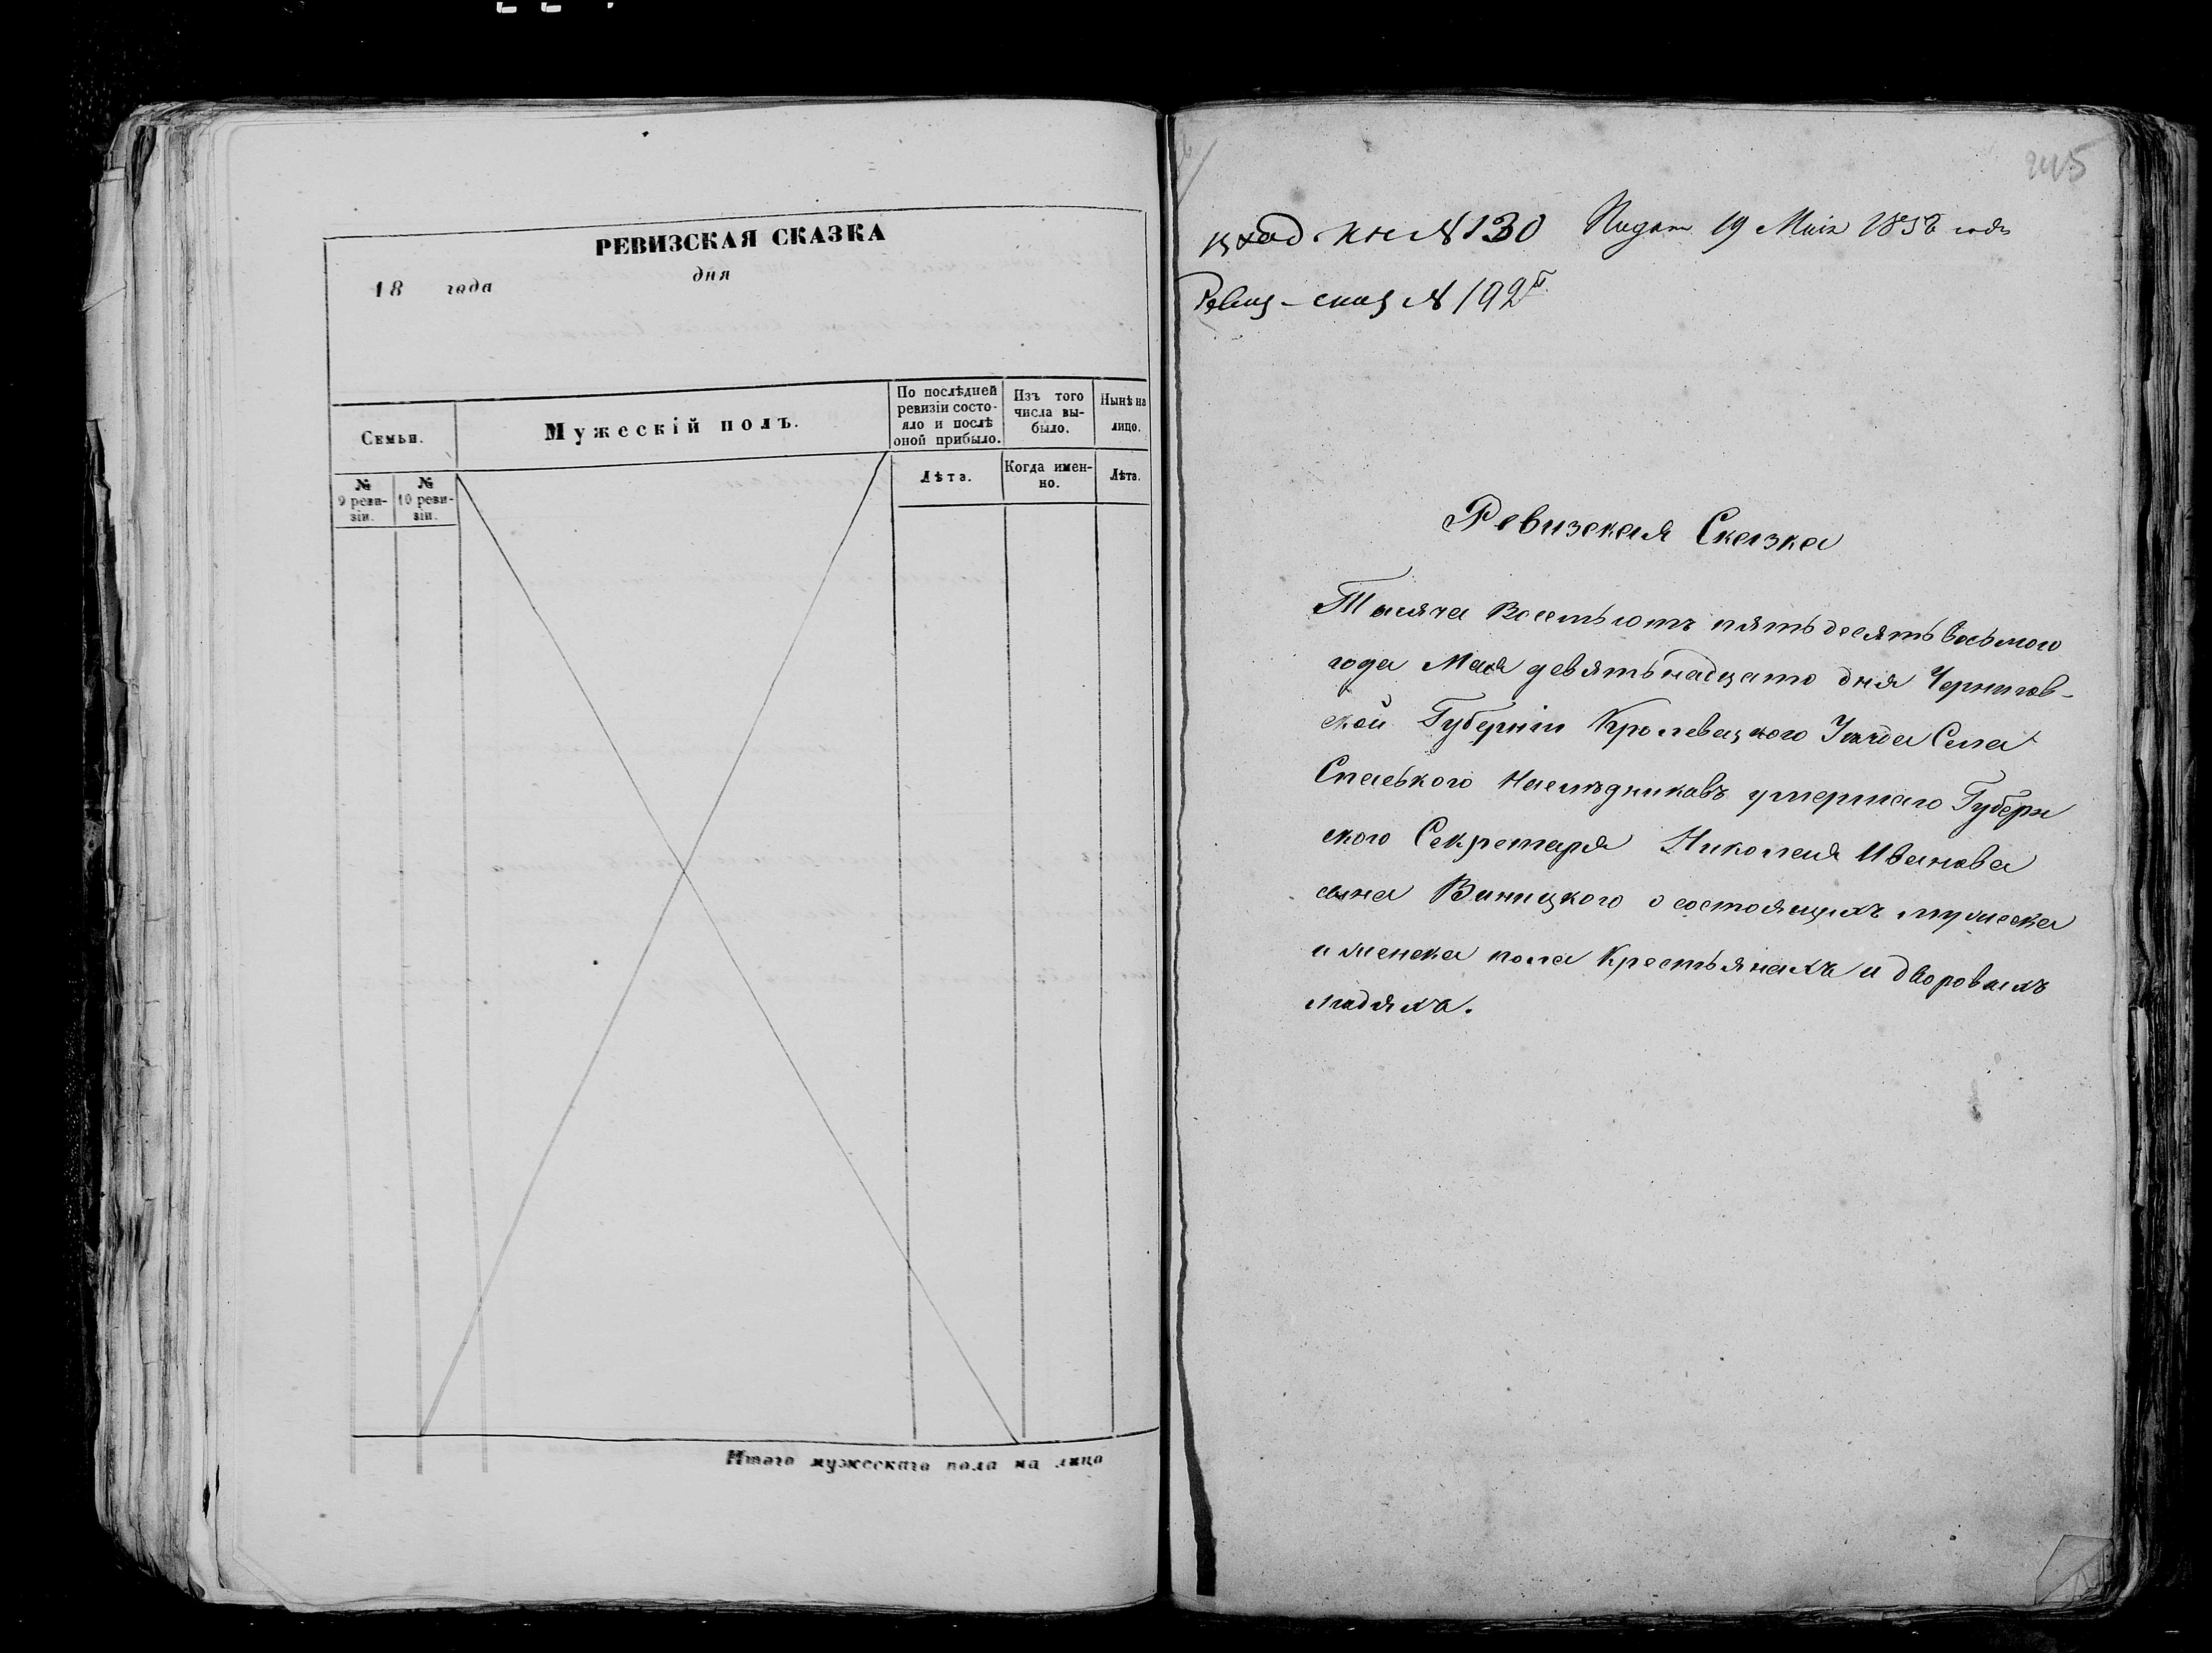 РЕВИЗСКАЯ СКАЗКА
18 года дня
Семьи.
Мужескій полъ.
По послѣдней
ревизіи состо-
яло и послѣ
оной прибыло.
Изъ того
числа вы-
было.
Нынѣ на
лицо.
№
9 реви-
зіи.
№
10 реви-
зіи.
Лѣта.
Когда имен-
но.
Лѣта.
Итого мужескаго пола на лицо
245
вход кн № 130 Подан 19 Мая 1858 года
Ревиз-сказ № 192
Ревизская Сказка
Тысяча восемьсотъ пятьдесятъ восьмого
года Мая девятьнадцато дня Чернигов-
ской Губерніи Кролевецкого Уѣзда Села
Спаського Наслѣдниковъ умершаго Губерн
ского Секретаря Николая Иванова
сына Виницкого о состоящихъ мужеска
и женска пола Крестьянахъ и дворовыхъ
людяхъ.